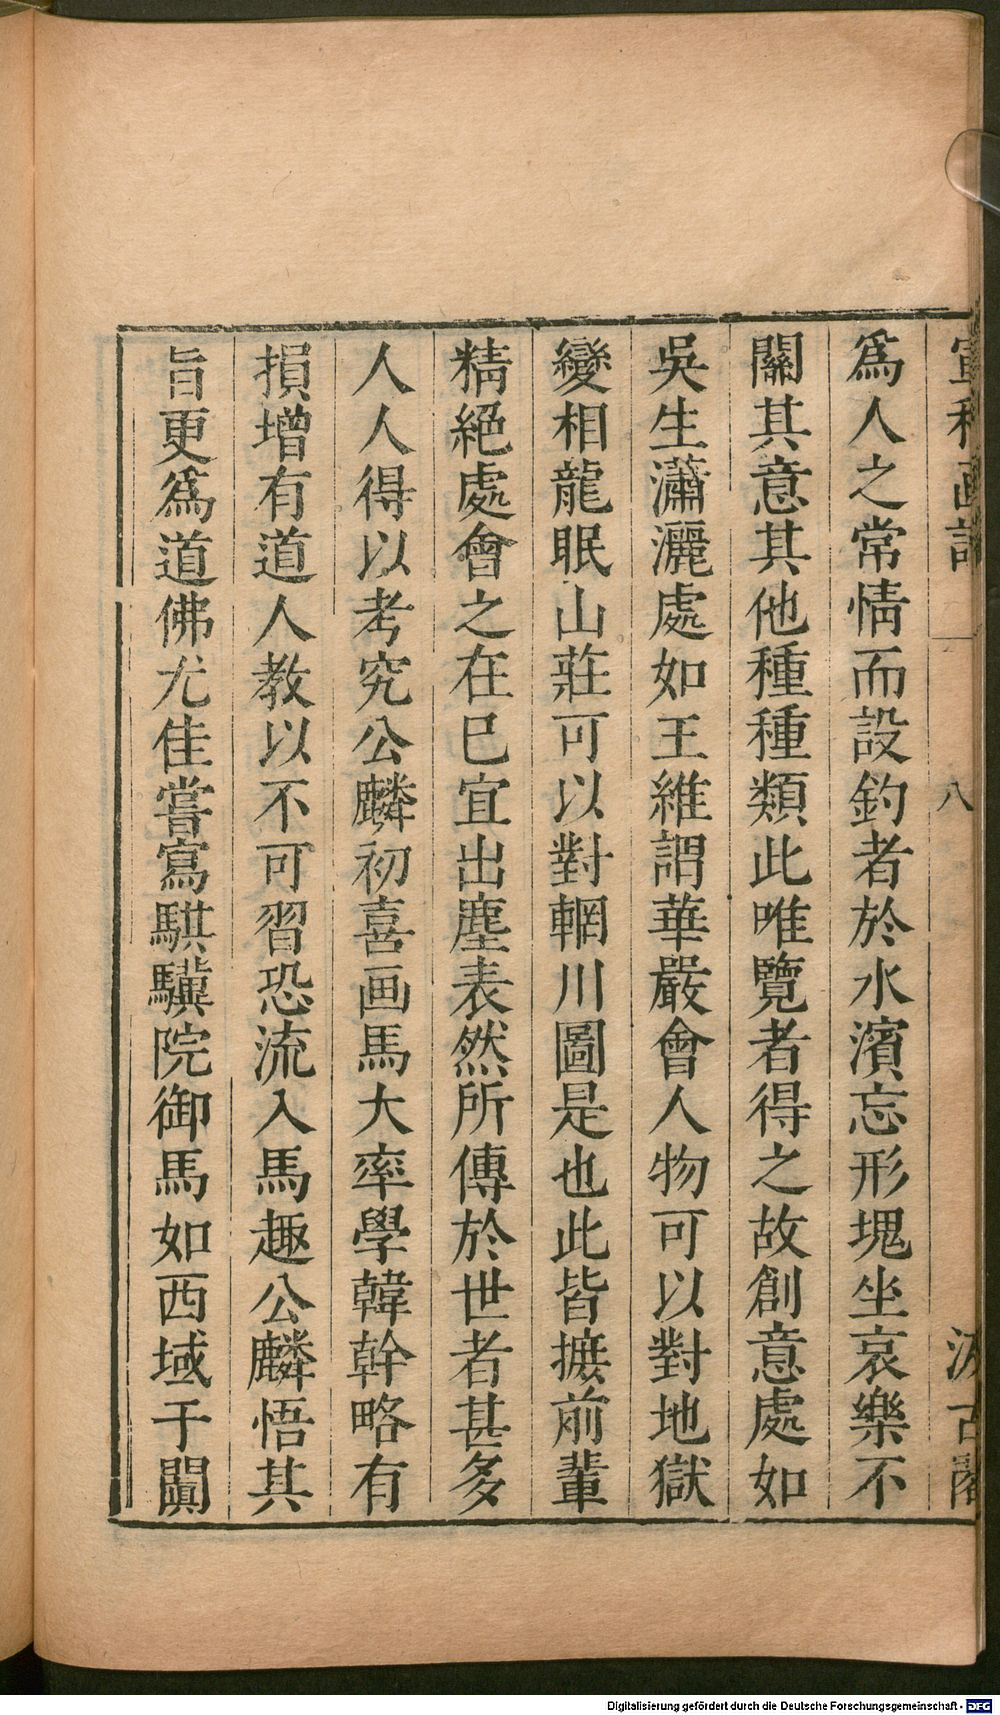 宣和画譜 八 汲古閣
爲人之常情而設釣者於水濱忘形塊坐哀樂不
關其意其他種種類此唯覽者得之故創意處如
吳生瀟灑處如王維謂華嚴會人物可以對地獄
變相龍眠山莊可以對輞川圖是也此皆摭前輩
精絕處會之在巳宜出塵表然所傳於世者甚多
人人得以考究公麟初喜画馬大率學韓幹略有
損增有道人教以不可習恐流入馬趣公麟悟其
旨更爲道佛尤佳嘗寫騏驥院御馬如西域于闐
Digitalisierung gefördert durch die Deutsche Forschungsgemeinschaft - DFG